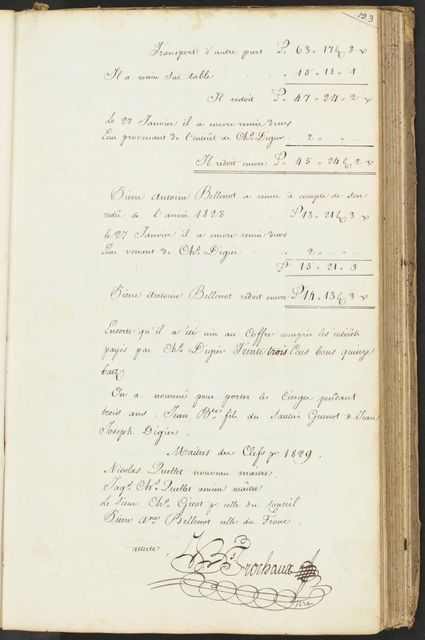 123
Transport d'autre part P. 63 " 17 ß 3 x
Il a remis sur table " 15 " 12 " 1
Il redoit P. 47 " 24 " 2 x
Le 27 Janvier il a encore remis deux
Ecus provenant de l'intérêt de Chs. Digier 2 " " "
Il redoit encore P. 45 " 24 ß 2 x
Pierre Antoine Bellenot a remis à compte de son
redû de l'année 1828 P. 13 " 21 ß 3 x
le 27 Janvier il a encore remis deux
Ecus venant de Chs. Digier " 2 " " "
P. 15 " 21 " 3
Pierre Antoine Bellenot redoit encore P. 14 " 13 ß 3 x
Ensorte qu'il a été mis au Coffre compris les intérêts
payés par Chs. Digier Trente trois Ecus bons quinze
batz
On a nommé pour porter les Cierges pendant
trois ans : Jean Bte. fils du Sautier Guenot & Jean
Joseph Digier.
Maitres des Clefs pr. 1829
Nicolas Quellet nouveau maitre.
Jaqs. Chs. Quellet ancien maître
Le Sieur Chs. Girot pr. celle du Conseil
Pierre Ane. Bellenot celle du Trône.
atteste
JB Frochaux